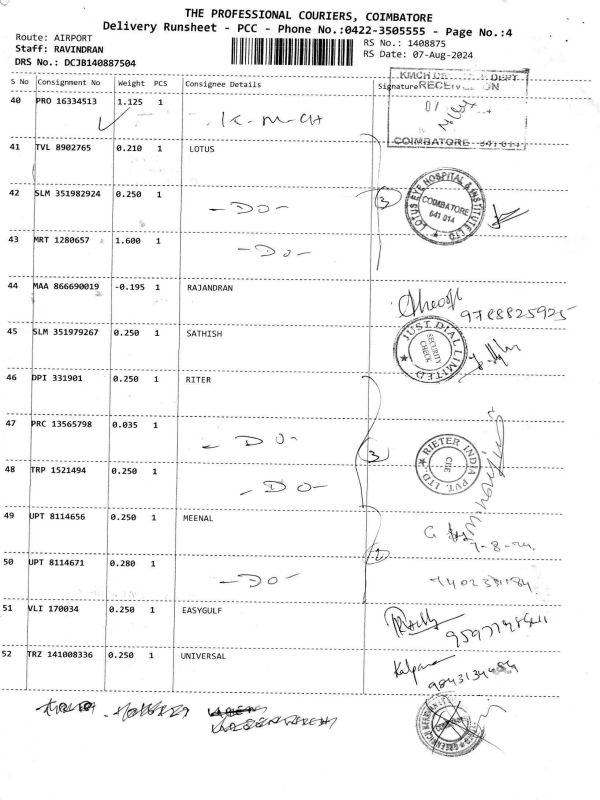 THE PROFESSIONAL COURIERS, COIMBATORE
Delivery Runsheet - PCC - Phone No.:0422-3505555 - Page No.:4
Route: AIRPORT
Staff: RAVINDRAN
DRS No.: DCJB140887504
RS No.: 1408875
RS Date: 07-Aug-2024
S No Consignment No Weight PCS Consignee Details Signature
RECEIVED
COIMBATORE - 641 014
40 PRO 16334513 1.125 1 K-M-CH
41 TVL 8902765 0.210 1 LOTUS
42 SLM 351982924 0.250 1 -DO-
3
LOTUS EYE HOSPITAL & INSTITUTE LTD
COIMBATORE
641 014
43 MRT 1280657 1.600 1 -DO-
44 MAA 866690019 -0.195 1 RAJANDRAN
9788825925
45 SLM 351979267 0.250 1 SATHISH
JUST DIAL LIMITED
SECURITY
CHECK
46 DPI 331901 0.250 1 RITER
47 PRC 13565798 0.035 1 -DO-
3
RIETER INDIA PVT. LTD.
48 TRP 1521494 0.250 1 -DO-
49 UPT 8114656 0.250 1 MEENAL
7-8-24
50 UPT 8114671 0.280 1 -DO-
51 VLI 170034 0.250 1 EASYGULF
52 TRZ 141008336 0.250 1 UNIVERSAL
Kalpana
9843134984